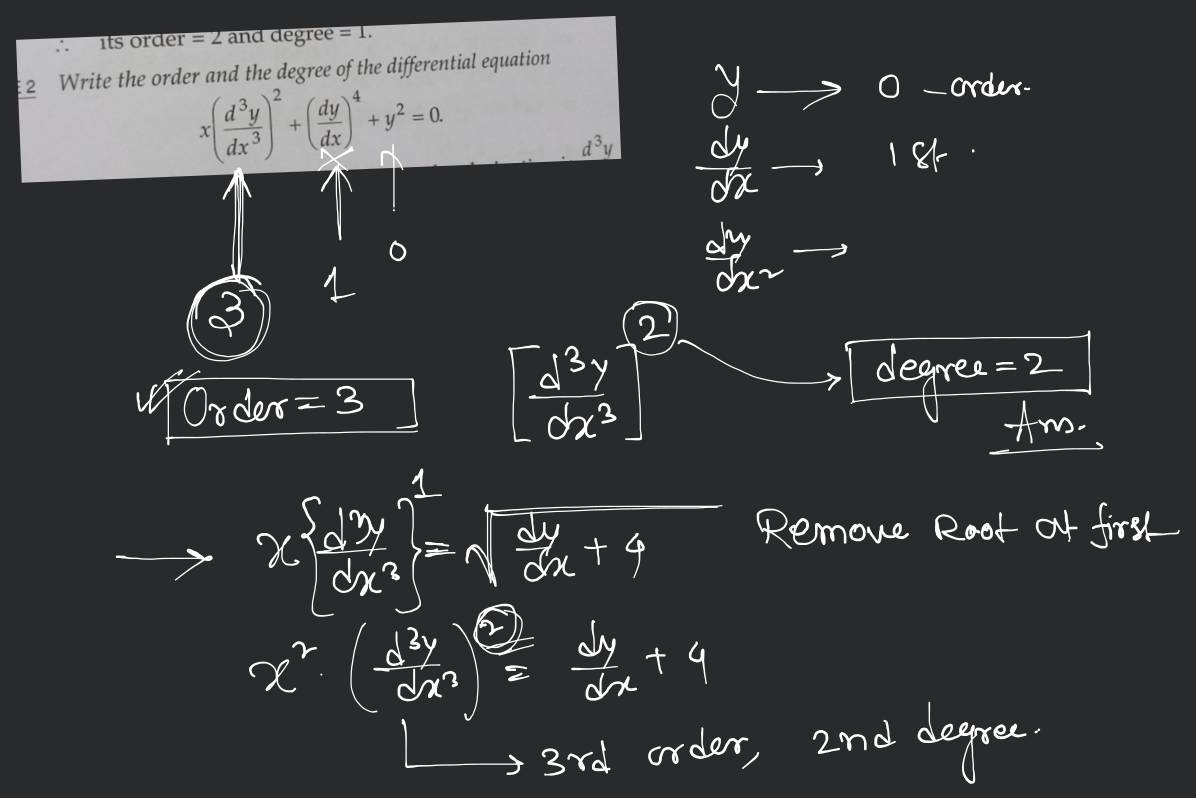 ∴ its order = 2 and degree = 1.
E 2 Write the order and the degree of the differential equation
x(d³y/dx³)² + (dy/dx)⁴ + y² = 0.
d³y
y → 0 - order.
dy/dx → 1st.
d²y/dx² →
3 1 0
Order = 3
[d³y/dx³]² → degree = 2
Ans.
→ x{d³y/dx³}¹ = √(dy/dx + 4) Remove Root at first
x². (d³y/dx³)² = dy/dx + 4
→ 3rd order, 2nd degree.